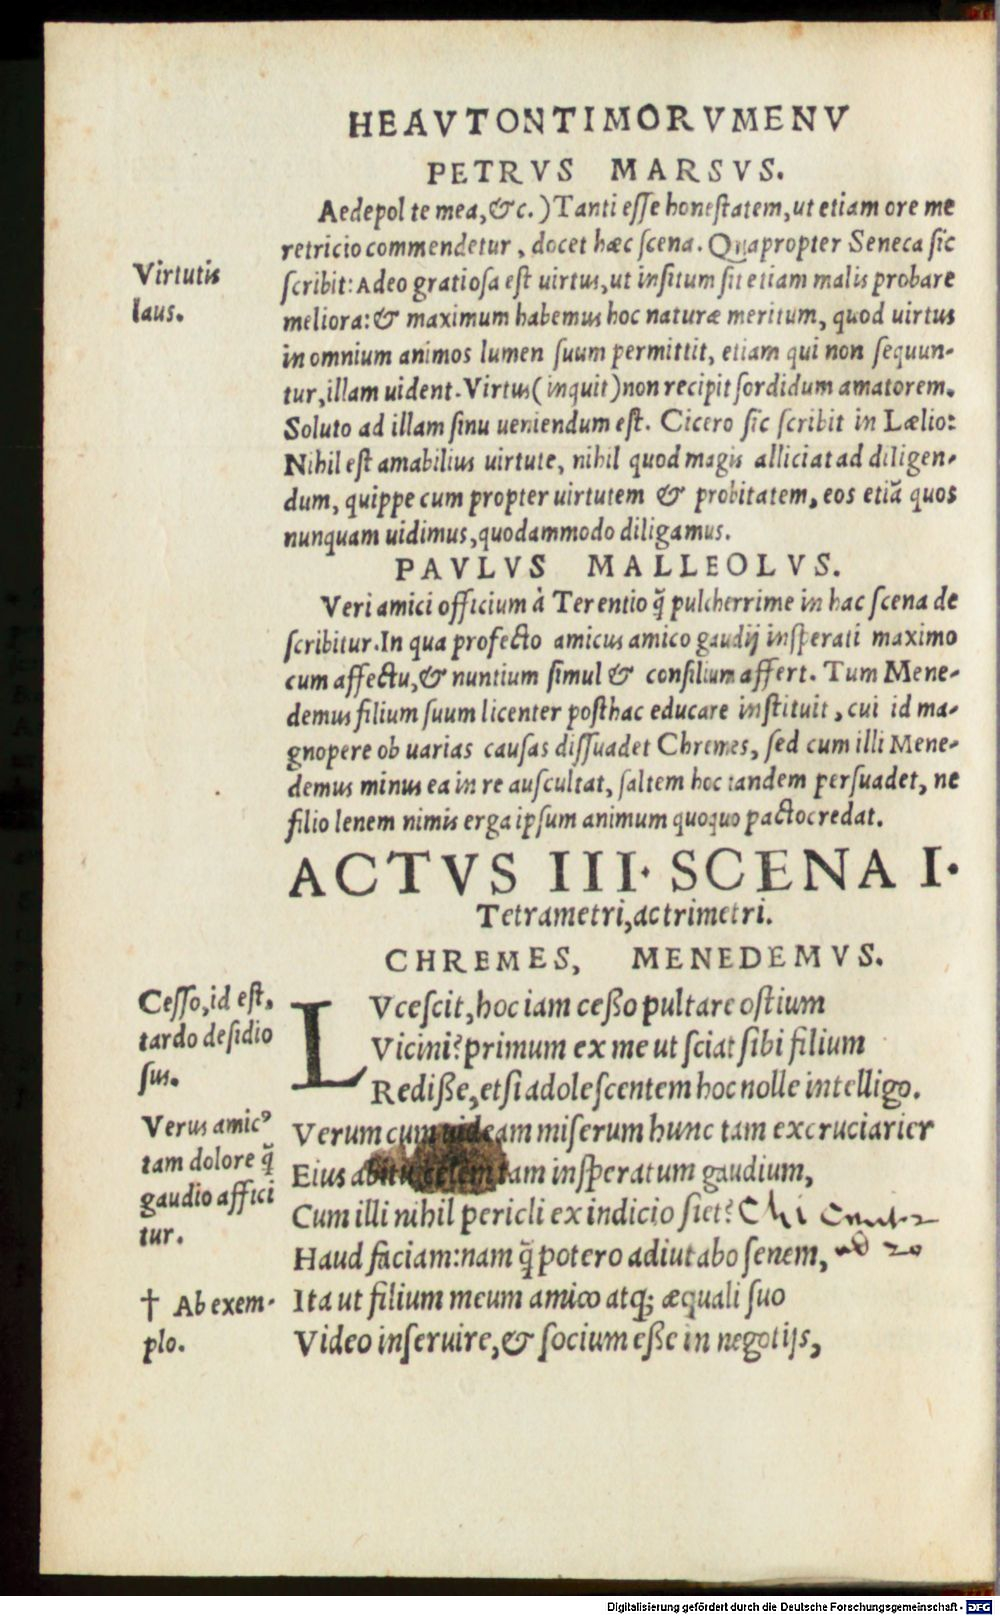 HEAVTONTIMORVMENV
PETRVS MARSVS.
Aedepol te mea, &c.) Tanti esse honestatem, ut etiam ore me
retricio commendetur, docet hæc scena. Quapropter Seneca sic
scribit: Adeo gratiosa est uirtus, ut insitum sit etiam malis probare
meliora: & maximum habemus hoc naturæ meritum, quod uirtus
in omnium animos lumen suum permittit, etiam qui non sequun-
tur, illam uident. Virtus (inquit) non recipit sordidum amatorem.
Soluto ad illam sinu ueniendum est. Cicero sic scribit in Lælio:
Nihil est amabilius uirtute, nihil quod magis alliciat ad diligen-
dum, quippe cum propter uirtutem & probitatem, eos etiã quos
nunquam uidimus, quodammodo diligamus.
Virtutis
laus.
PAVLVS MALLEOLVS.
Veri amici officium à Terentio q̃ pulcherrime in hac scena de
scribitur. In qua profecto amicus amico gaudij insperati maximo
cum affectu, & nuntium simul & consilium affert. Tum Mene-
demus filium suum licenter posthac educare instituit, cui id ma-
gnopere ob uarias causas dissuadet Chremes, sed cum illi Mene-
demus minus ea in re auscultat, saltem hoc tandem persuadet, ne
filio lenem nimis erga ipsum animum quoquo pacto credat.
ACTVS III. SCENA I.
Tetrametri, ac trimetri.
CHREMES, MENEDEMVS.
LVcescit, hoc iam ceßo pultare ostium
Vicini? primum ex me ut sciat sibi filium
Rediße, etsi adolescentem hoc nolle intelligo.
Verum cum uideam miserum hunc tam excruciarier
Eius abitu, celem tam insperatum gaudium,
Cum illi nihil pericli ex indicio siet?
Haud faciam: nam q̃ potero adiutabo senem,
Ita ut filium meum amico atq; æquali suo
Video inseruire, & socium eße in negotijs,
Cesso, id est,
tardo desidio
sus.
Verus amicꝰ
tam dolore q̃
gaudio affici
tur.
† Ab exem-
plo.
Digitalisierung gefördert durch die Deutsche Forschungsgemeinschaft - DFG